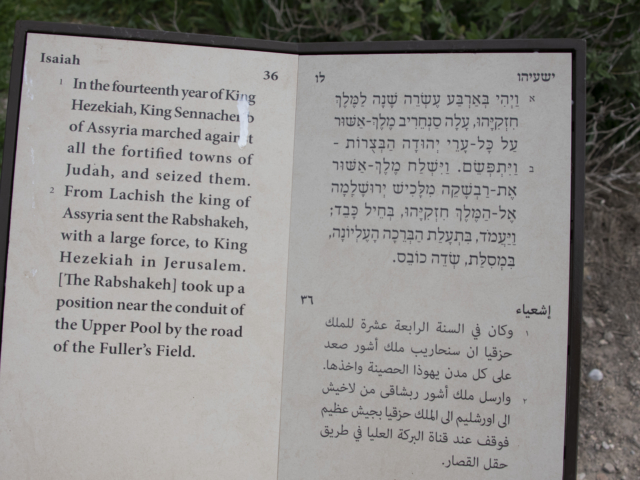 Isaiah
36
1 In the fourteenth year of King
Hezekiah, King Sennacherib
of Assyria marched against
all the fortified towns of
Judah, and seized them.
2 From Lachish the king of
Assyria sent the Rabshakeh,
with a large force, to King
Hezekiah in Jerusalem.
[The Rabshakeh] took up a
position near the conduit of
the Upper Pool by the road
of the Fuller's Field.
ישעיהו
לו
א וַיְהִי בְּאַרְבַּע עֶשְׂרֵה שָׁנָה לַמֶּלֶךְ
חִזְקִיָּהוּ, עָלָה סַנְחֵרִיב מֶלֶךְ-אַשּׁוּר
עַל כָּל-עָרֵי יְהוּדָה הַבְּצֻרוֹת -
ב וַיִּתְפְּשֵׂם. וַיִּשְׁלַח מֶלֶךְ-אַשּׁוּר
אֶת-רַבְשָׁקֵה מִלָּכִישׁ יְרוּשָׁלְַמָה
אֶל-הַמֶּלֶךְ חִזְקִיָּהוּ, בְּחֵיל כָּבֵד;
וַיַּעֲמֹד, בִּתְעָלַת הַבְּרֵכָה הָעֶלְיוֹנָה,
בִּמְסִלַּת, שְׂדֵה כוֹבֵס.
إشعياء
٣٦
١ وكان في السنة الرابعة عشرة للملك
حزقيا ان سنحاريب ملك أشور صعد
على كل مدن يهوذا الحصينة واخذها.
٢ وارسل ملك أشور ربشاقى من لاخيش
الى اورشليم الى الملك حزقيا بجيش عظيم
فوقف عند قناة البركة العليا في طريق
حقل القصار.